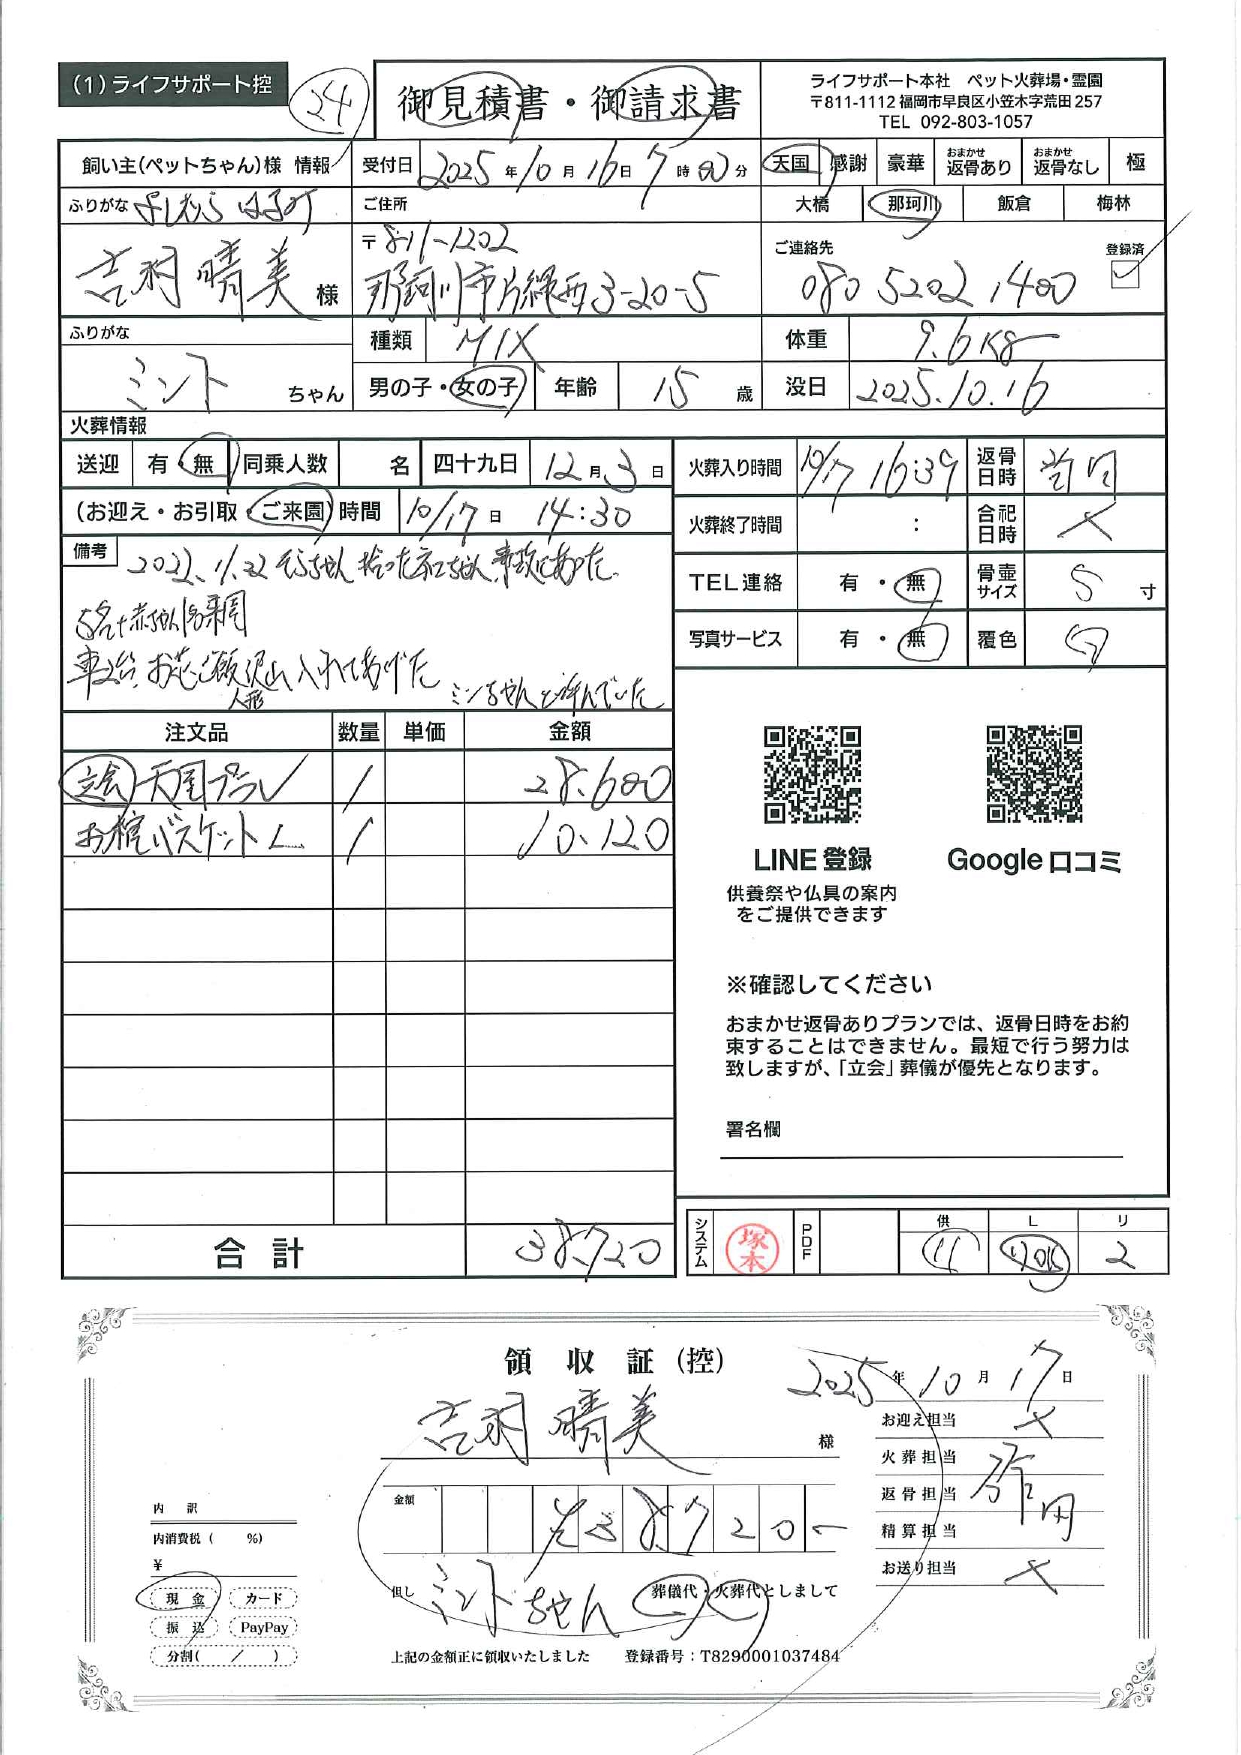 (1)ライフサポート控
24
御見積書・御請求書
ライフサポート本社 ペット火葬場・霊園
〒811-1112 福岡市早良区小笠木字荒田257
TEL 092-803-1057
飼い主(ペットちゃん)様 情報
受付日 2025年10月16日7時00分
天国 感謝 豪華 おまかせ返骨あり おまかせ返骨なし 極
ふりがな
ご住所
大橋 那珂川 飯倉 梅林
吉村 晴美 様
〒811-1202
那珂川市片縄西3-20-5
ご連絡先
登録済
080 5202 1400
ふりがな
ミント ちゃん
種類 MIX
体重 9.6kg
男の子・女の子 年齢 15 歳 没日 2025.10.16
火葬情報
送迎 有・無 同乗人数 名 四十九日 12月3日
火葬入り時間 10/17 16:39 返骨日時 当日
(お迎え・お引取・ご来園)時間 10/17日 14:30
火葬終了時間 : 合祀日時 ×
備考
2022.1.22 そらちゃん 拾ったネコちゃん 事故にあった
5名+赤ちゃん 来園
お花ご飯沢山入れてあげた
人形
ミンちゃんと呼んでいた
TEL連絡 有・無 骨壺サイズ 5 寸
写真サービス 有・無 覆色
注文品 数量 単価 金額
立会 天国プラン 1 28,600
お棺バスケットL 1 10,120
合計 38,720
LINE登録
供養祭や仏具の案内
をご提供できます
Google口コミ
※確認してください
おまかせ返骨ありプランでは、返骨日時をお約
束することはできません。最短で行う努力は
致しますが、「立会」葬儀が優先となります。
署名欄
システム 塚本 PDF 供 L リ 2
領収証(控)
2025年10月17日
吉村 晴美 様
金額 ¥38720-
但し ミントちゃん 葬儀代・火葬代としまして
上記の金額正に領収いたしました 登録番号:T8290001037484
お迎え担当 ×
火葬担当
返骨担当
精算担当
お送り担当 ×
内 訳
内消費税( %)
¥
現金 カード
振込 PayPay
分割( / )